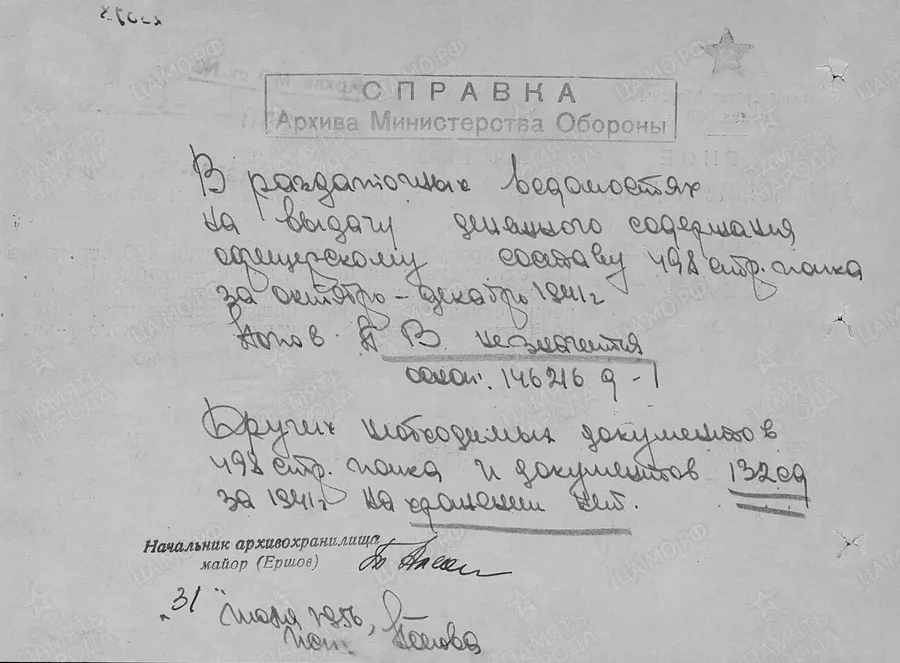 СПРАВКА
Архива Министерства Обороны
В раздаточных ведомостях
на выдачу денежного содержания
офицерскому составу 498 стр. полка
за октябрь – декабрь 1941 г
Попов П В не значится
основ: 146216 д - 1
Других необходимых документов
498 стр. полка и документов 132 сд
за 1941 г на хранении нет.
Начальник архивохранилища
майор (Ершов)
"31" мая 1956,
исп: Попова